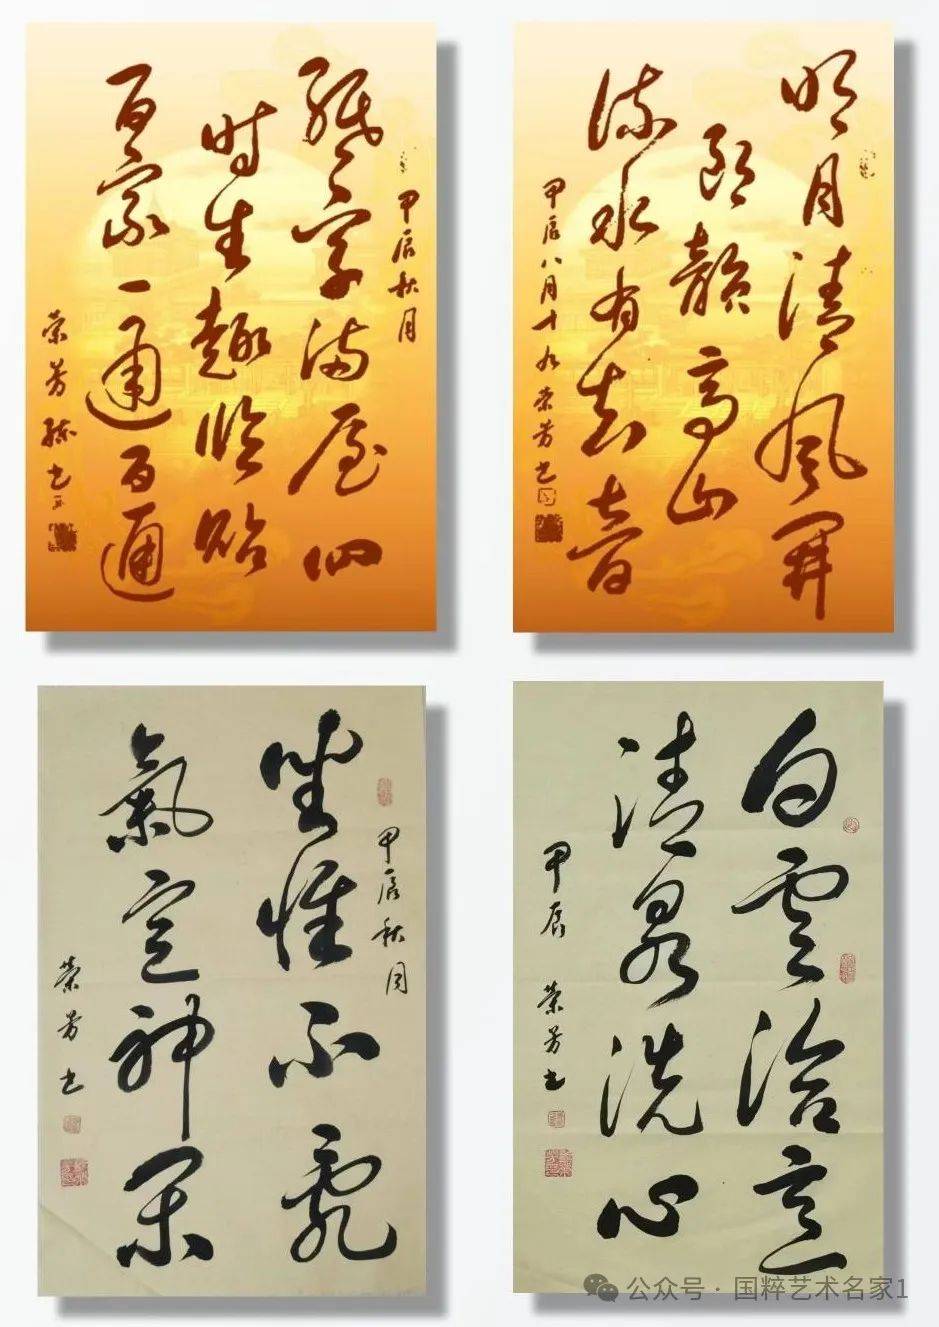 甲辰秋月
字满屋四
时生趣临贴
百家一通百通
荣芳撰书
明月清风開
朗韻高山
流水有知音
甲辰八月十九荣芳书
甲辰秋月
坐惟不亂
氣定神闲
荣芳书
白雲洽意
清泉洗心
甲辰 荣芳书
公众号·国粹艺术名家1